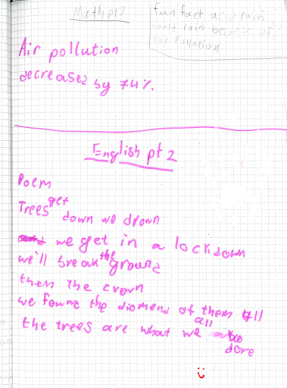 Math pt 2
fun fact acid rain
Air pollution
decreased by 74%.
English pt 2
Poem
Trees get down we drown
we get in a lockdown
we'll break the ground
then the crown
we fowne the diomend of them all
the trees are what we all
dore